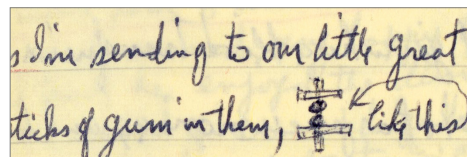 s I'm sending to our little great
ticks of gum in them, like this